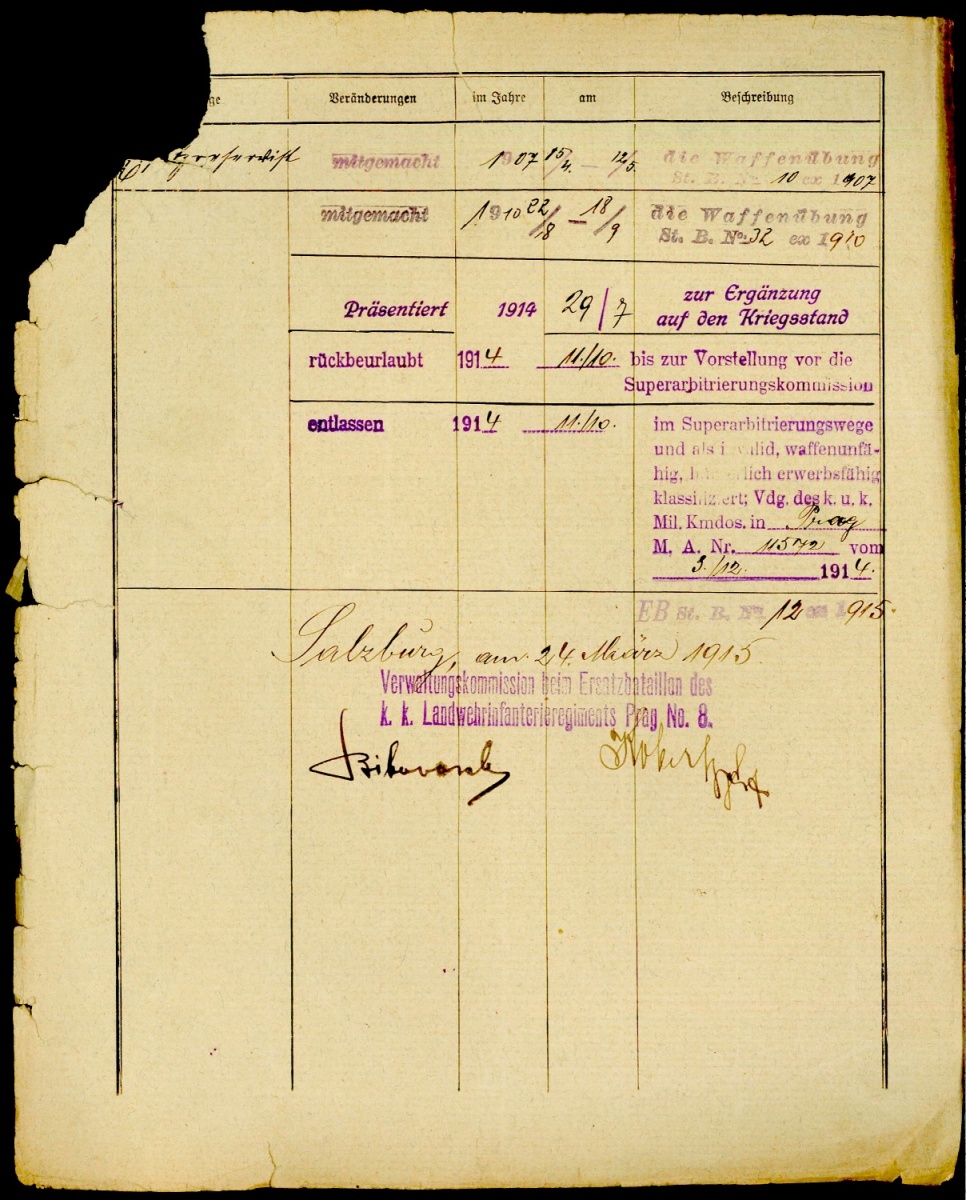 ge Veränderungen im Jahre am Beschreibung
mitgemacht 1907 15/4. — 12/5. die Waffenübung
St. B. No. 10 ex 1907
mitgemacht 1910 22/18 — 18/9 die Waffenübung
St. B. No. 32 ex 1910
zur Ergänzung
Präsentiert 1914 29/7 auf den Kriegsstand
rückbeurlaubt 1914 11./10. bis zur Vorstellung vor die
Superarbitrierungskommission
entlassen 1914 11./10. im Superarbitrierungswege
und als invalid, waffenunfä-
hig, erwerbsfähig
klassifiziert; Vdg. des k. u. k.
Mil. Kmdos. in Prag
M. A. Nr. 11572 vom
3./12. 1914.
EB St. B. No. 12 ex 1915.
Salzburg, am 24. März 1915.
Verwaltungskommission beim Ersatzbataillon des
k. k. Landwehrinfanterieregiments Prag No. 8.